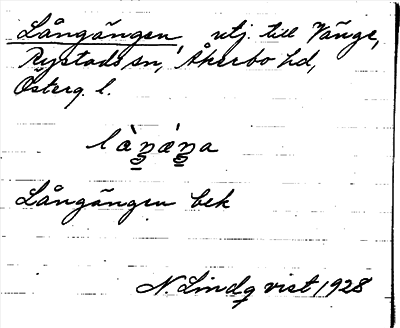 Långängen, utj. till Vänge,
Rystads sn, Åkerbo hd,
Österg. l.
Långängen bek
N. Lindqvist 1928